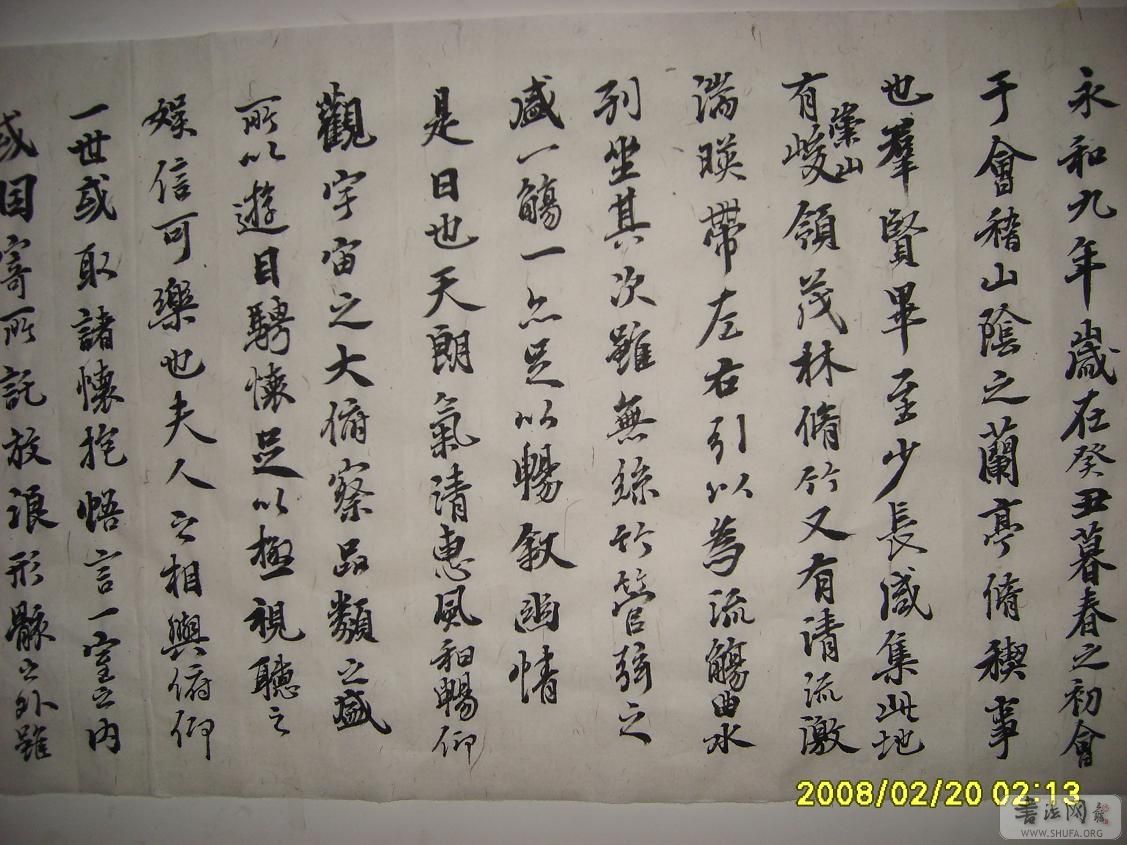 永和九年歲在癸丑暮春之初會
于會稽山陰之蘭亭脩稧事
也羣賢畢至少長咸集此地
有崇山峻領茂林脩竹又有清流激
湍暎帶左右引以為流觴曲水
列坐其次雖無絲竹管弦之
盛一觴一詠足以暢敘幽情
是日也天朗氣清惠風和暢仰
觀宇宙之大俯察品類之盛
所以遊目騁懷足以極視聽之
娛信可樂也夫人之相與俯仰
一世或取諸懷抱悟言一室之內
或因寄所託放浪形骸之外雖
2008/02/20 02:13
書法网
WWW.SHUFA.ORG